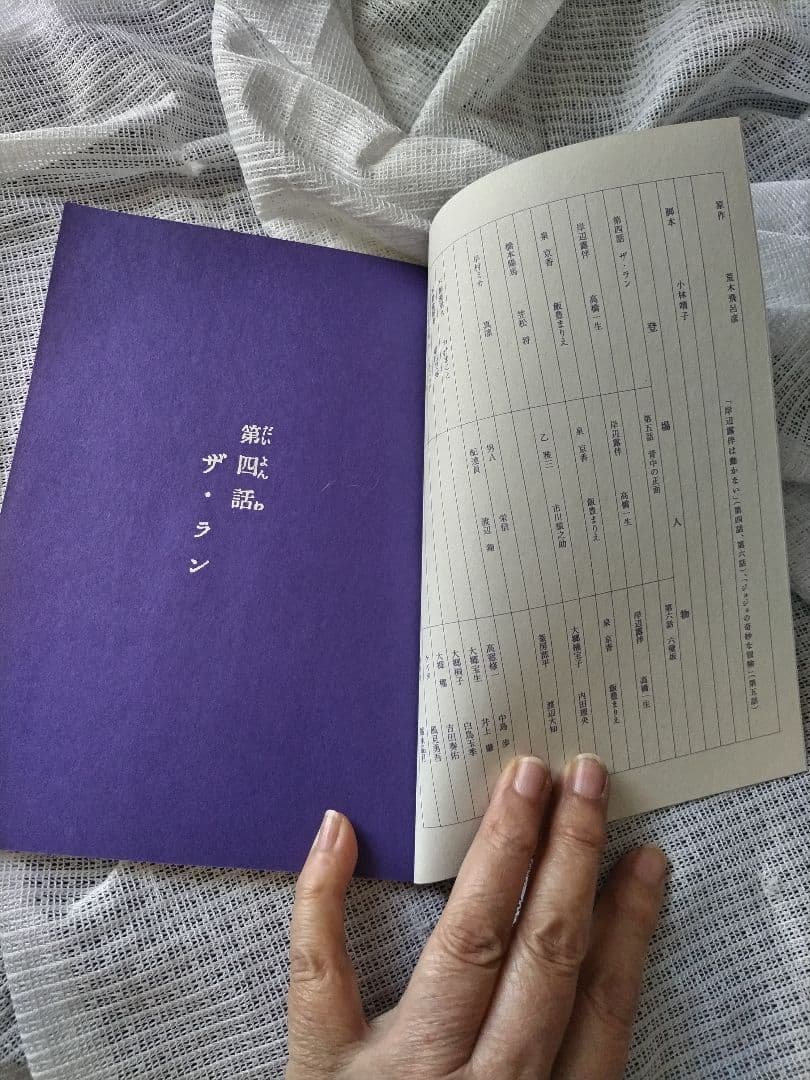 原作　荒木飛呂彦　「岸辺露伴は動かない」(第四話、第六話)、「ジョジョの奇妙な冒険」(第五話)
脚本　小林靖子
登場人物
第四話　ザ・ラン
岸辺露伴　高橋一生
泉　京香　飯豊まりえ
橋本陽馬　笠松　将
早村ミカ　真凛
第五話　背中の正面
岸辺露伴　高橋一生
泉　京香　飯豊まりえ
乙　雅三　市川猿之助
男A　栄信
配達員　渡辺　翔
第六話　六壁坂
岸辺露伴　高橋一生
泉　京香　飯豊まりえ
大郷楠宝子　内田理央
釜房郡平　渡辺大知
高窓修一　中島　歩
大郷宝生　井上　肇
大郷楨子　白鳥玉季
大郷　櫂　吉田奏佑
第四話
だいよんわ
ザ・ラン